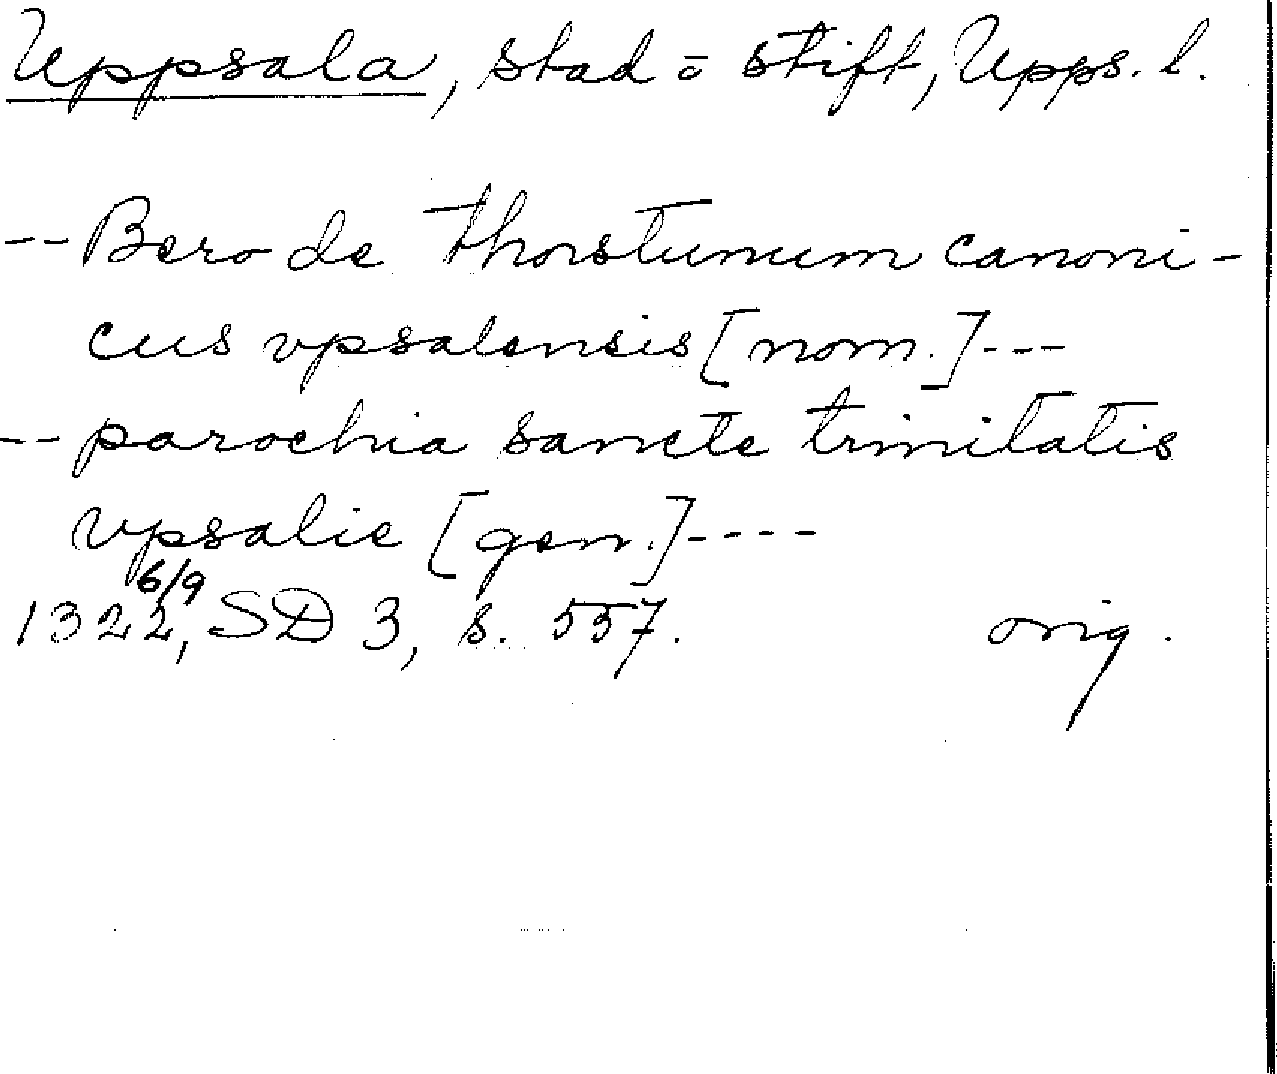 Uppsala, stad o stift, Upps. l.
-- Bero de thorstunum canoni-
cus vpsalensis [nom.] ---
-- parochia sancte trinitatis
vpsalie [gen.] ----
6/9
1322, SD 3, s. 557. orig.